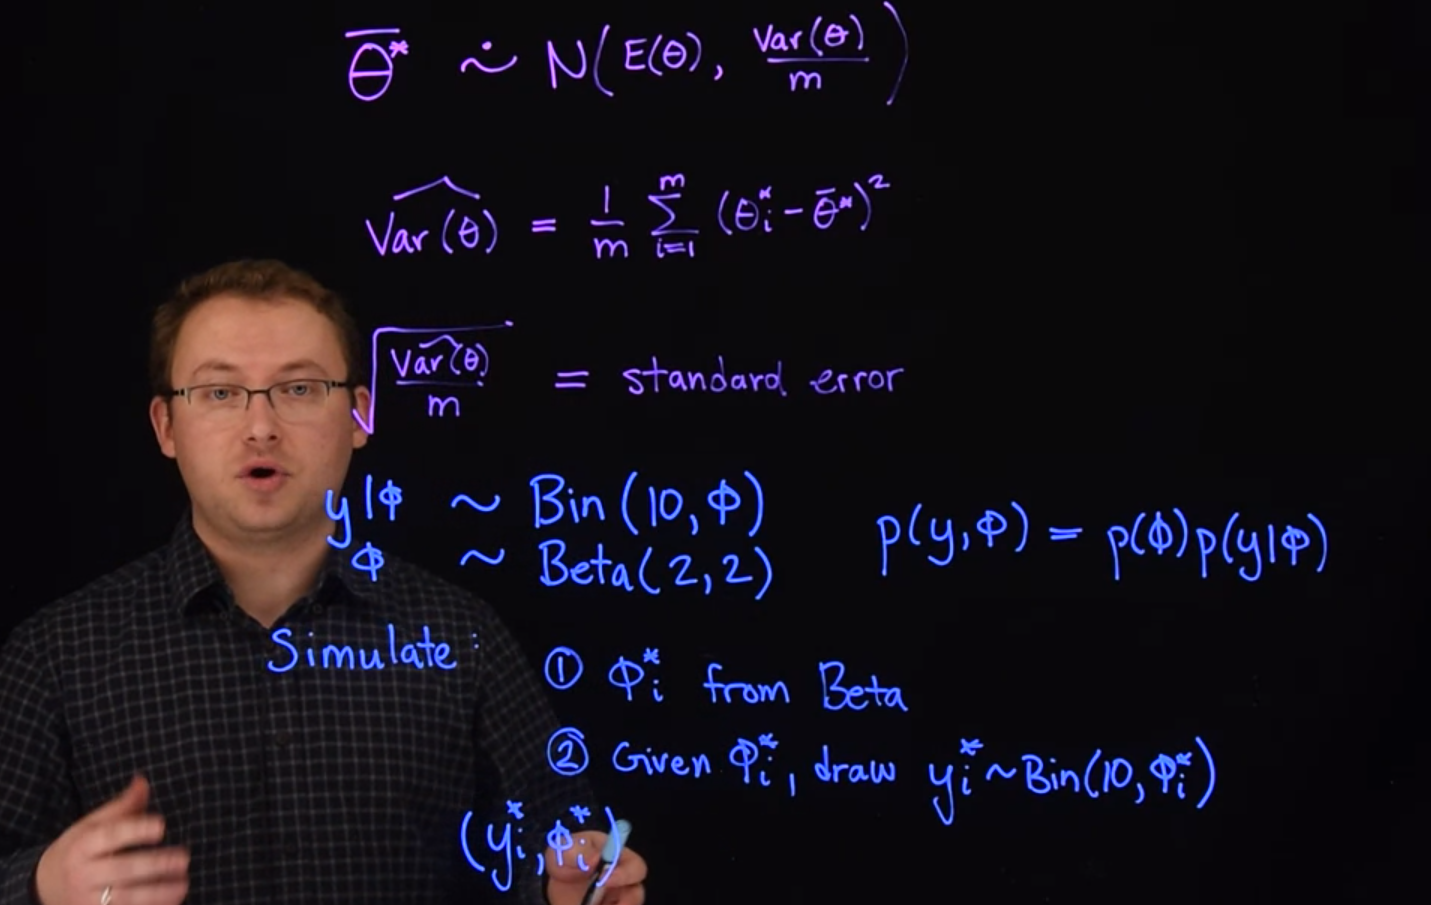 θ̅* ∼̇ N(E(θ), Var(θ)/m)
Var(θ)^ = 1/m ∑_{i=1}^{m} (θ*_i - θ̅*)²
√(Var(θ)^/m) = standard error
y|ϕ ~ Bin(10, ϕ)
ϕ ~ Beta(2,2)
p(y,ϕ) = p(ϕ)p(y|ϕ)
Simulate:
① ϕ*_i from Beta
② Given ϕ*_i, draw y*_i ~ Bin(10, ϕ*_i)
(y*_i, ϕ*_i)